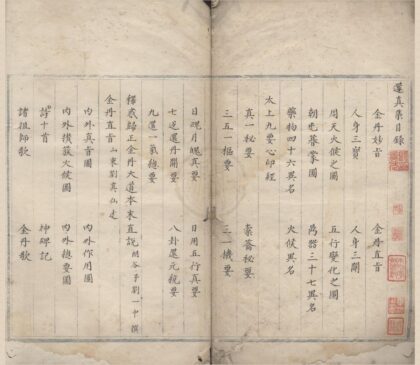 還真集目錄
金丹妙旨　金丹直旨
人身三寶　人身三關
周天火候之圖　五行變化之圖
朝屯暮蒙圖　鼎器三十七異名
藥物四十六異名　火候異名
太上九要心印經
真一秘要　橐籥秘要
三五一樞要　三一機要
日魂月魄真要　日用五行真要
七返還丹開要　八卦還元統要
九還一氣總要
釋惑歸正金丹大道本末直說　劉一中撰
金丹直旨
內外真音圖　內外作用圖
內外攢簇火候圖　內外總要圖
詩十首　神碑記
諸祖師歌　金丹歌